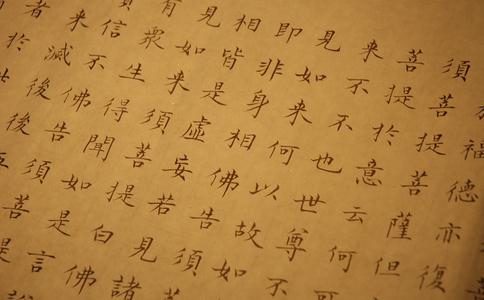 福德亦復
須菩提菩薩但
菩提於意云何
來不不也世尊不
見如來何以故如
即非身相佛告須
相皆是虛妄若見諸
見如來須菩提白佛
有眾生得聞如是言
信不佛告須菩提
來滅後後
者於